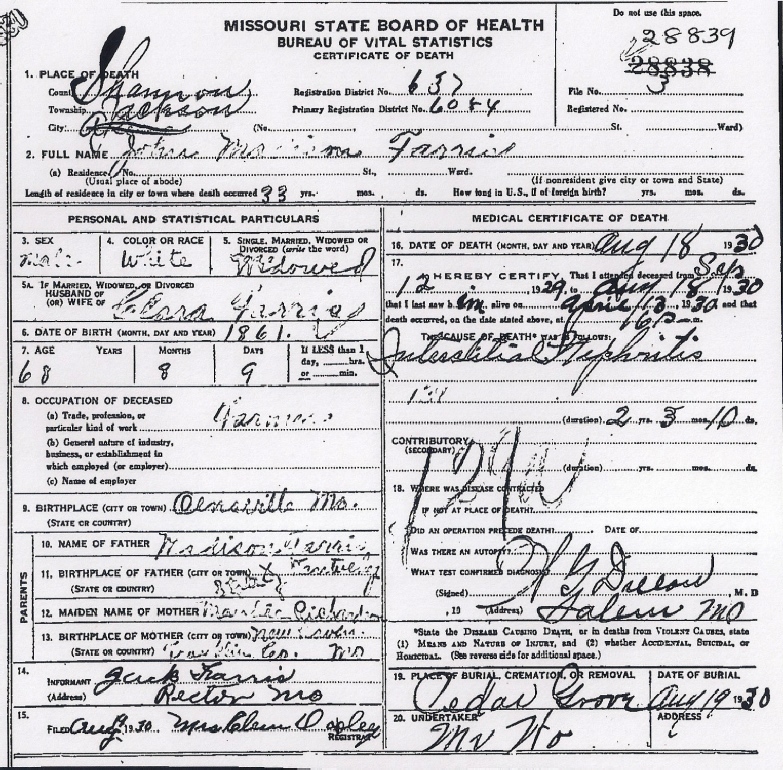 MISSOURI STATE BOARD OF HEALTH
BUREAU OF VITAL STATISTICS
CERTIFICATE OF DEATH
Do not use this space.
28839
28838
1. PLACE OF DEATH
County Shannon Registration District No. 637 File No. 3
Township Jackson Primary Registration District No. 6084 Registered No.
City (No. St. Ward)
2. FULL NAME John Farris
(a) Residence, No. St., Ward.
(Usual place of abode) (If nonresident give city or town and State)
Length of residence in city or town where death occurred 33 yrs. mos. ds. How long in U.S., if of foreign birth? yrs. mos. ds.
PERSONAL AND STATISTICAL PARTICULARS
3. SEX 4. COLOR OR RACE 5. SINGLE, MARRIED, WIDOWED OR
DIVORCED (write the word)
male White Widowed
5A. IF MARRIED, WIDOWED, OR DIVORCED
HUSBAND OF
(OR) WIFE OF Clora Farris
6. DATE OF BIRTH (MONTH, DAY AND YEAR) 1861.
7. AGE YEARS MONTHS DAYS If LESS than 1
day, hrs.
or min.
68 8 9
8. OCCUPATION OF DECEASED
(a) Trade, profession, or
particular kind of work Farmer
(b) General nature of industry,
business, or establishment in
which employed (or employer)
(c) Name of employer
9. BIRTHPLACE (CITY OR TOWN) Mo.
(STATE OR COUNTRY)
PARENTS
10. NAME OF FATHER Madison Farris
11. BIRTHPLACE OF FATHER (CITY OR TOWN) Kentucky
(STATE OR COUNTRY)
12. MAIDEN NAME OF MOTHER Richardson
13. BIRTHPLACE OF MOTHER (CITY OR TOWN)
(STATE OR COUNTRY) Franklin Co. Mo
14.
INFORMANT Jack Farris
(Address) Rector Mo
15.
FILED Aug 19 1930 Mrs Clem Dooley
REGISTRAR
MEDICAL CERTIFICATE OF DEATH
16. DATE OF DEATH (MONTH, DAY AND YEAR) Aug 18 1930
17.
I HEREBY CERTIFY, That I attended deceased from Sep
12 1929, to Aug 18 1930
that I last saw him alive on April 13, 1930, and that
death occurred, on the date stated above, at
THE CAUSE OF DEATH* WAS AS FOLLOWS:
Interstitial Nephritis
131
(duration) 2 yrs. 3 mos. 10 ds.
CONTRIBUTORY
(SECONDARY)
(duration) yrs. mos. ds.
18. WHERE WAS DISEASE CONTRACTED
IF NOT AT PLACE OF DEATH?
DID AN OPERATION PRECEDE DEATH? DATE OF
WAS THERE AN AUTOPSY?
WHAT TEST CONFIRMED DIAGNOSIS?
(Signed) , M. D
, 19 (Address) Salem Mo
*State the DISEASE CAUSING DEATH, or in deaths from VIOLENT CAUSES, state
(1) MEANS AND NATURE OF INJURY, and (2) whether ACCIDENTAL, SUICIDAL, or
HOMICIDAL. (See reverse side for additional space.)
19. PLACE OF BURIAL, CREMATION, OR REMOVAL DATE OF BURIAL
Cedar Grove Aug 19 1930
20. UNDERTAKER ADDRESS